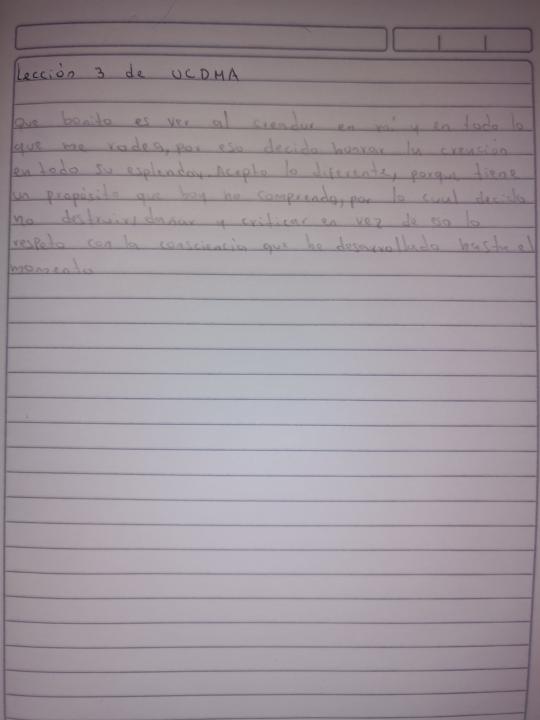 Lección 3 de UCDMA
Que bonito es ver al creador en mí y en todo lo
que me rodea, por eso decido honrar la creación
en todo su esplendor, Acepto lo diferente, porque tiene
un propósito que hoy no comprendo, por lo cual decido
no destruir, dañar y criticar en vez de eso lo
respeto con la consciencia que he desarrollado hasta el
momento